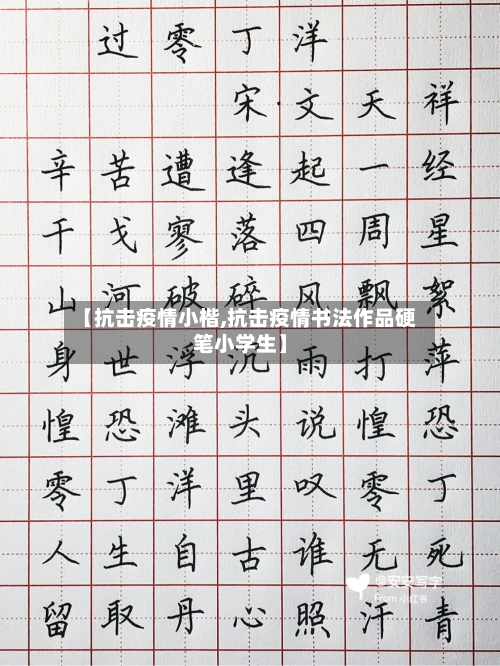 过零丁洋
宋·文天祥
辛苦遭逢起一经
干戈寥落四周星
山河破碎风飘絮
【抗击疫情小楷,抗击疫情书法作品硬
笔小学生】
身世浮沉雨打萍
惶恐滩头说惶恐
零丁洋里叹零丁
人生自古谁无死
@安安写字
From 小红书
留取丹心照汗青